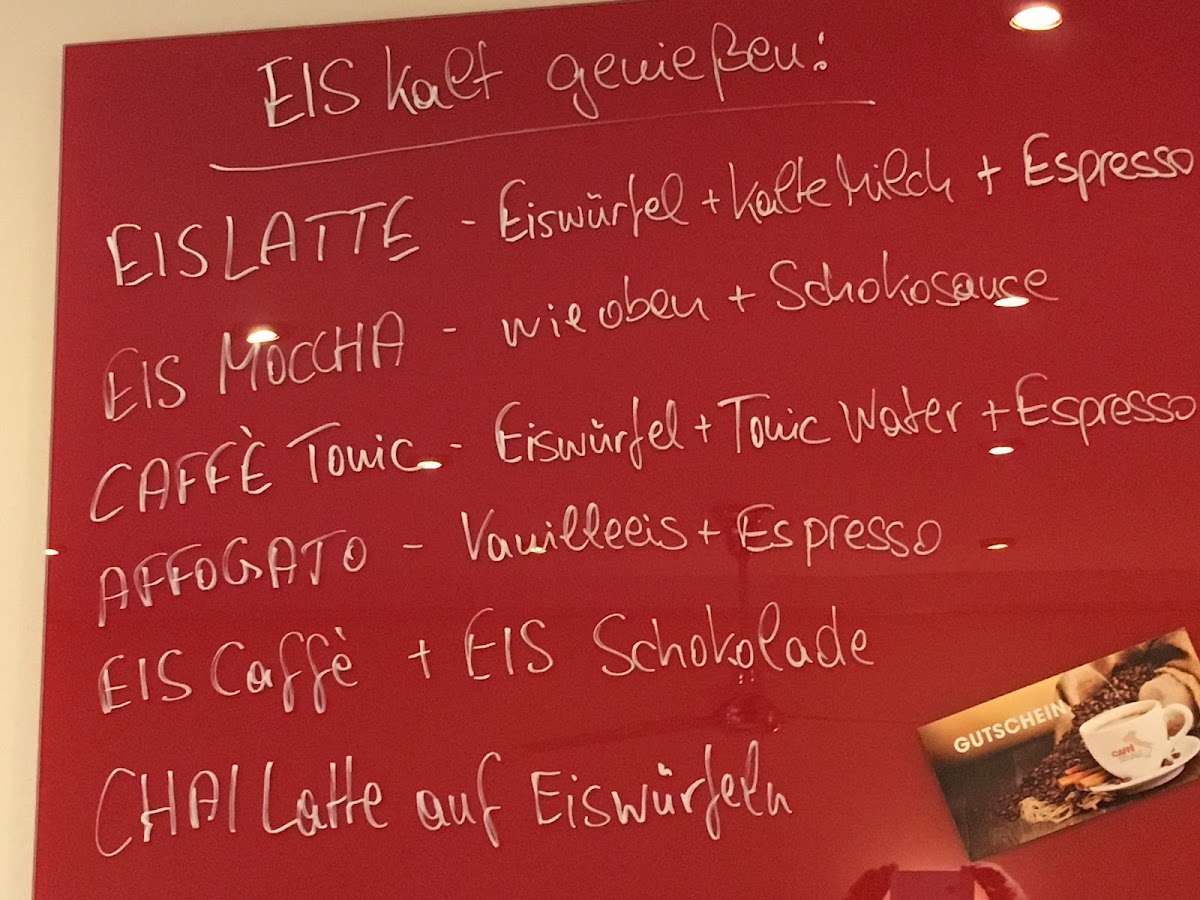 EIS kalt genießen:
EISLATTE - Eiswürfel + kalte Milch + Espresso
EIS MOCCHA - wie oben + Schokosauce
CAFFÈ Tonic - Eiswürfel + Tonic Water + Espresso
AFFOGATO - Vanilleeis + Espresso
EIS Caffè + EIS Schokolade
CHAI Latte auf Eiswürfeln
GUTSCHEIN
CAFFÈ